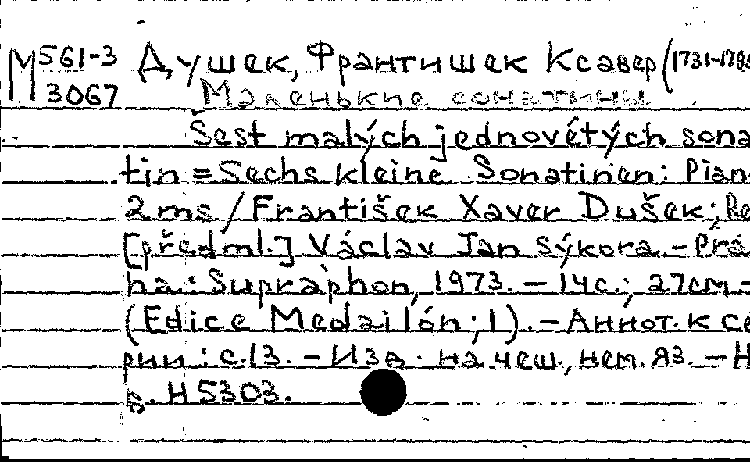 М 561-3 Душек, Франтишек Ксавер (1731-1799
3067 Маленькие сонатины
Šest malých jednovětých sona
tin = Sechs kleine Sonatinen: Pian
2 ms / František Xaver Dušek; Re
[předml.] Václav Jan Sýkora. - Pra
ha: Supraphon, 1973. - 14 с.; 27 см. -
(Edice Medailón; 1). - Аннот. к се
рии: с. 13. - Изд. на чеш., нем. яз. - Н
д. Н 5303.